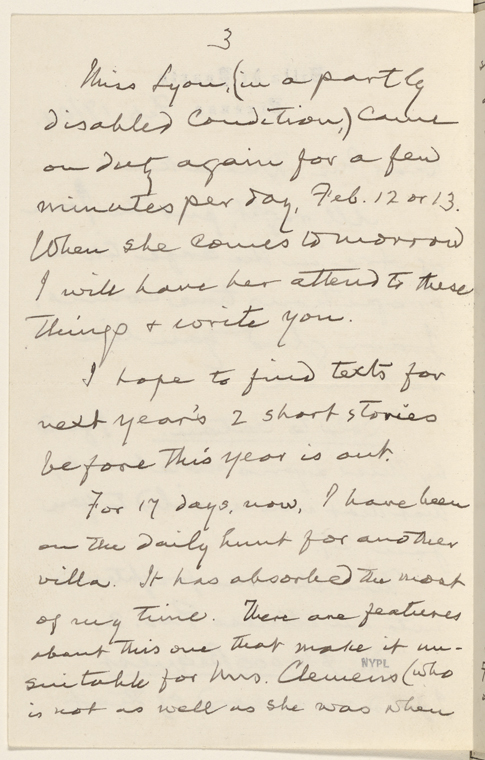 3
Miss Lyon, (in a partly
disabled condition,) came
on duty again for a few
minutes per day, Feb. 12 or 13.
When she comes tomorrow
I will have her attend to these
things & write you.
I hope to find texts for
next year's 2 short stories
before this year is out.
For 17 days, now, I have been
on the daily hunt for another
villa. It has absorbed the most
of my time. There are features
about this one that make it un-
suitable for Mrs. Clemens (who
is not as well as she was when
NYPL